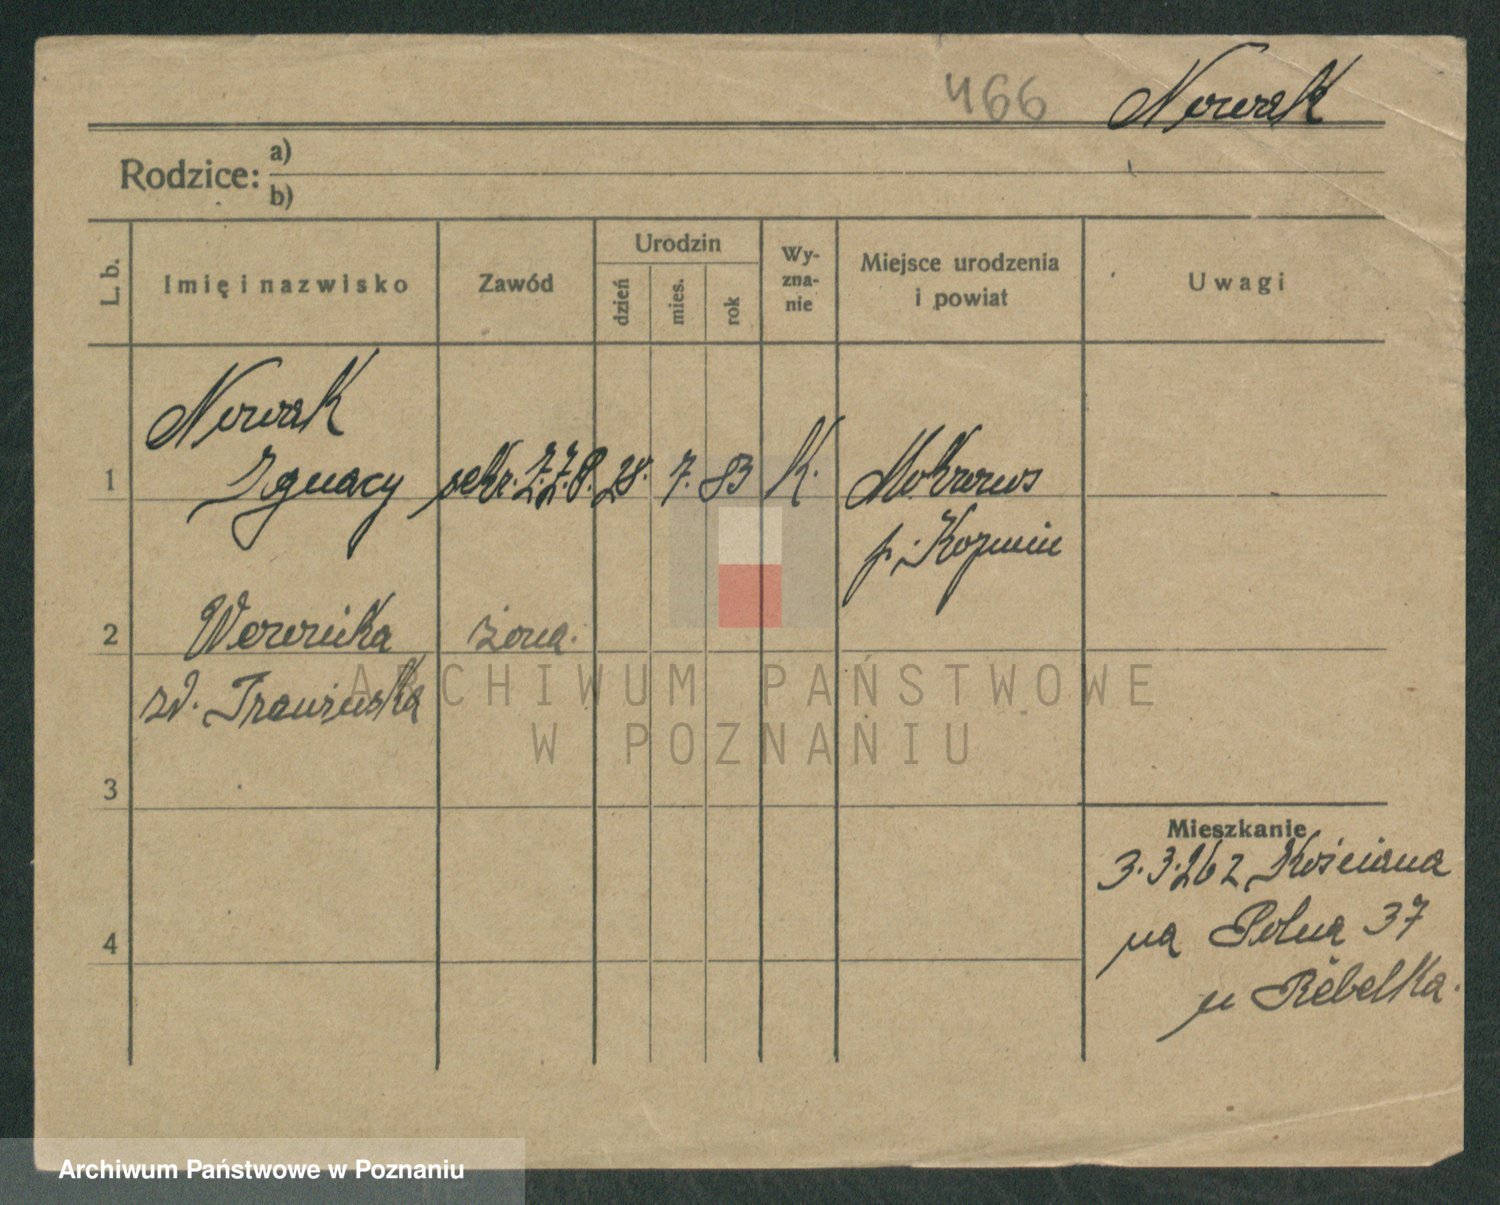 466 Nowak
Rodzice: a)
b)
L. b.
Imię i nazwisko
Zawód
Urodzin
dzień
mies.
rok
Wy-
zna-
nie
Miejsce urodzenia
i powiat
Uwagi
Nowak
1 Ignacy sekr. Z.Z.P. 28. 7. 83 K. Mokronos
p. Koźmin
2 Weronika żona.
zd.
3
Mieszkanie
3.3.26 z Kościana
na Polna 37
4
u Rebelka.
ARCHIWUM PAŃSTWOWE
W POZNANIU
Archiwum Państwowe w Poznaniu